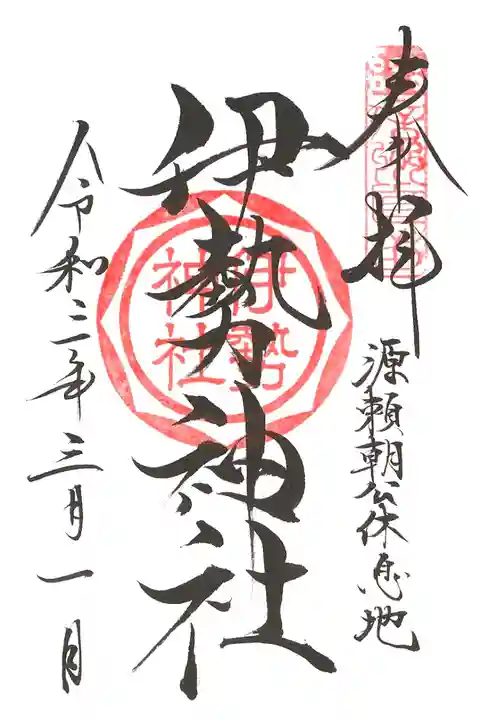 奉拝
源頼朝公休息地
伊勢神社
伊勢
神社
令和三年三月一日